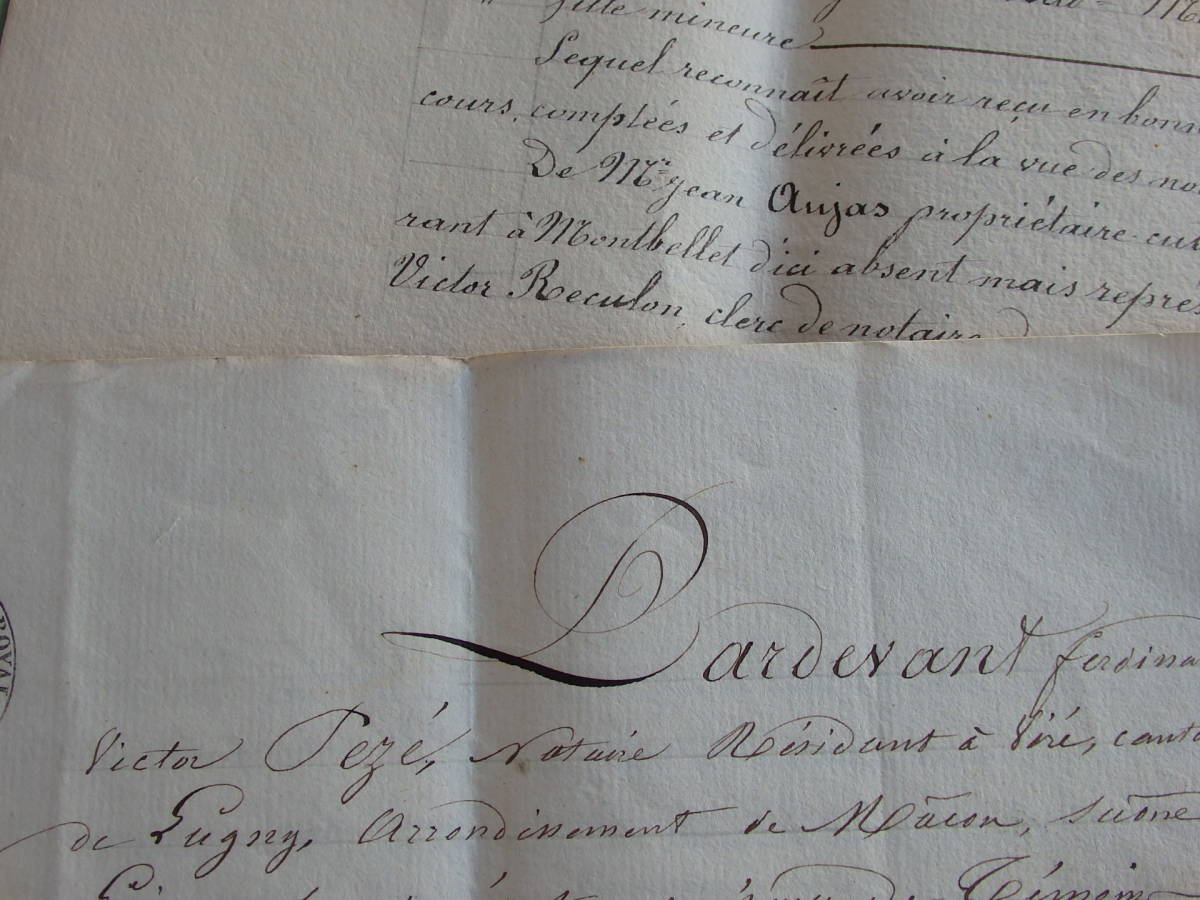 fille mineure
Lequel reconnaît avoir reçu en bonn
cours, comptées et délivrées à la vue des no
De Mr. Jean Aujas propriétaire cul
rant à Montbellet d'ici absent mais repré
Victor Reculon, clerc de notaire
Pardevant ferdina
Victor Pezé, Notaire Résidant à Viré, canto
de Lugny, Arrondissement de Mâcon, Saône
Témoin
ROYAL